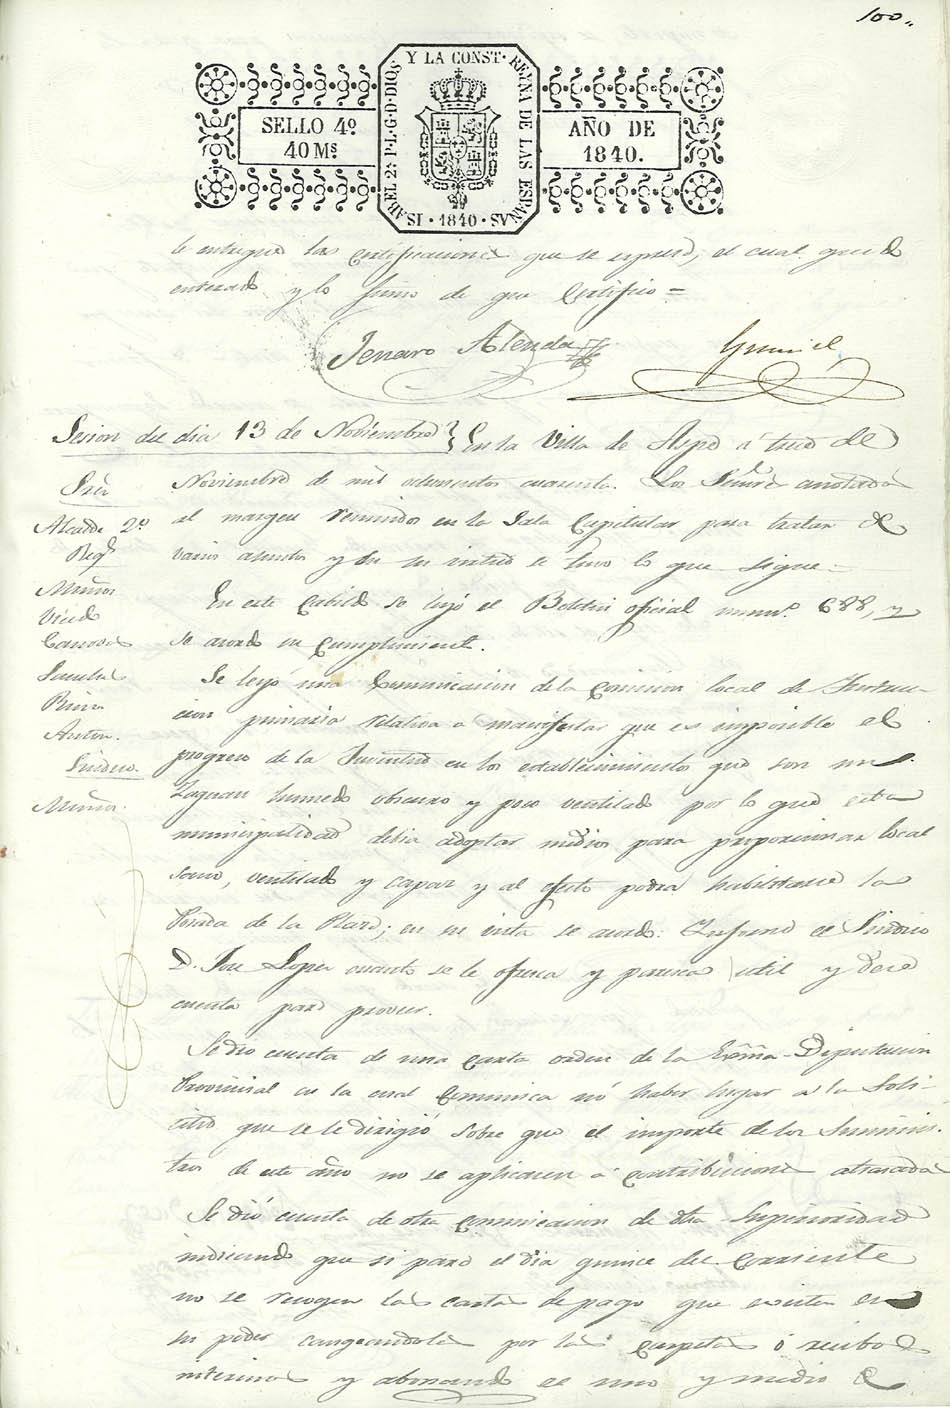 100,,
Y LA CONST. REYNA DE LAS ESPAÑAS · 1840 · ISABEL 2ª P.L.G.D.DIOS
SELLO 4º
40 Mˢ
AÑO DE
1840.
le entregué las certificaciones que se espresa, el cual quedó
enterado y lo firmo de que Certifico =
Jenaro Alenda
Sesion del dia 13 de Noviembre } En la Villa de Aspe á trece de
Noviembre de mil ochocientos cuarenta. Los Señores anotados
al margen reunidos en la Sala Capitular para tratar de
varios asuntos y en su virtud se tuvo lo que sigue =
Sres
Alcalde 2º
Regs
Muñoz
Vicedo
Canovas
Sanchez
Anton.
Sindico.
Muñoz.
En este Cabildo se leyó el Boletin oficial num.º 688, y
se acordó su cumplimiento.
Se leyó una Comunicacion de la Comision local de Instruc-
cion primaria relativa a manifestar que es imposible el
progreso de la Juventud en los establecimientos que son un
Zaguan humedo obscuro y poco ventilado por lo que esta
municipalidad debia adoptar medios para proporcionar local
sano, ventilado y capaz y al efecto podria habilitarse la
Posada de la Plaza; en su vista se acordó: Informe el Sindico
D. Jose Lopez cuanto se le ofrezca y parezca util y dese
cuenta para proveer.
Se dio cuenta de una carta orden de la Exma Diputacion
Provincial en la cual comunica no haber lugar a la Soli-
citud que se le dirigió sobre que el importe de los Suminis-
tros de este año no se aplicasen á contribuciones atrasadas
Se dió cuenta de otra comunicacion de dha Superioridad
indicando que si para el dia quince del corriente
no se recogen las cartas de pago que existen en
su poder cangeandolas por las carpetas ó recibos
interinos y abonando el uno y medio de